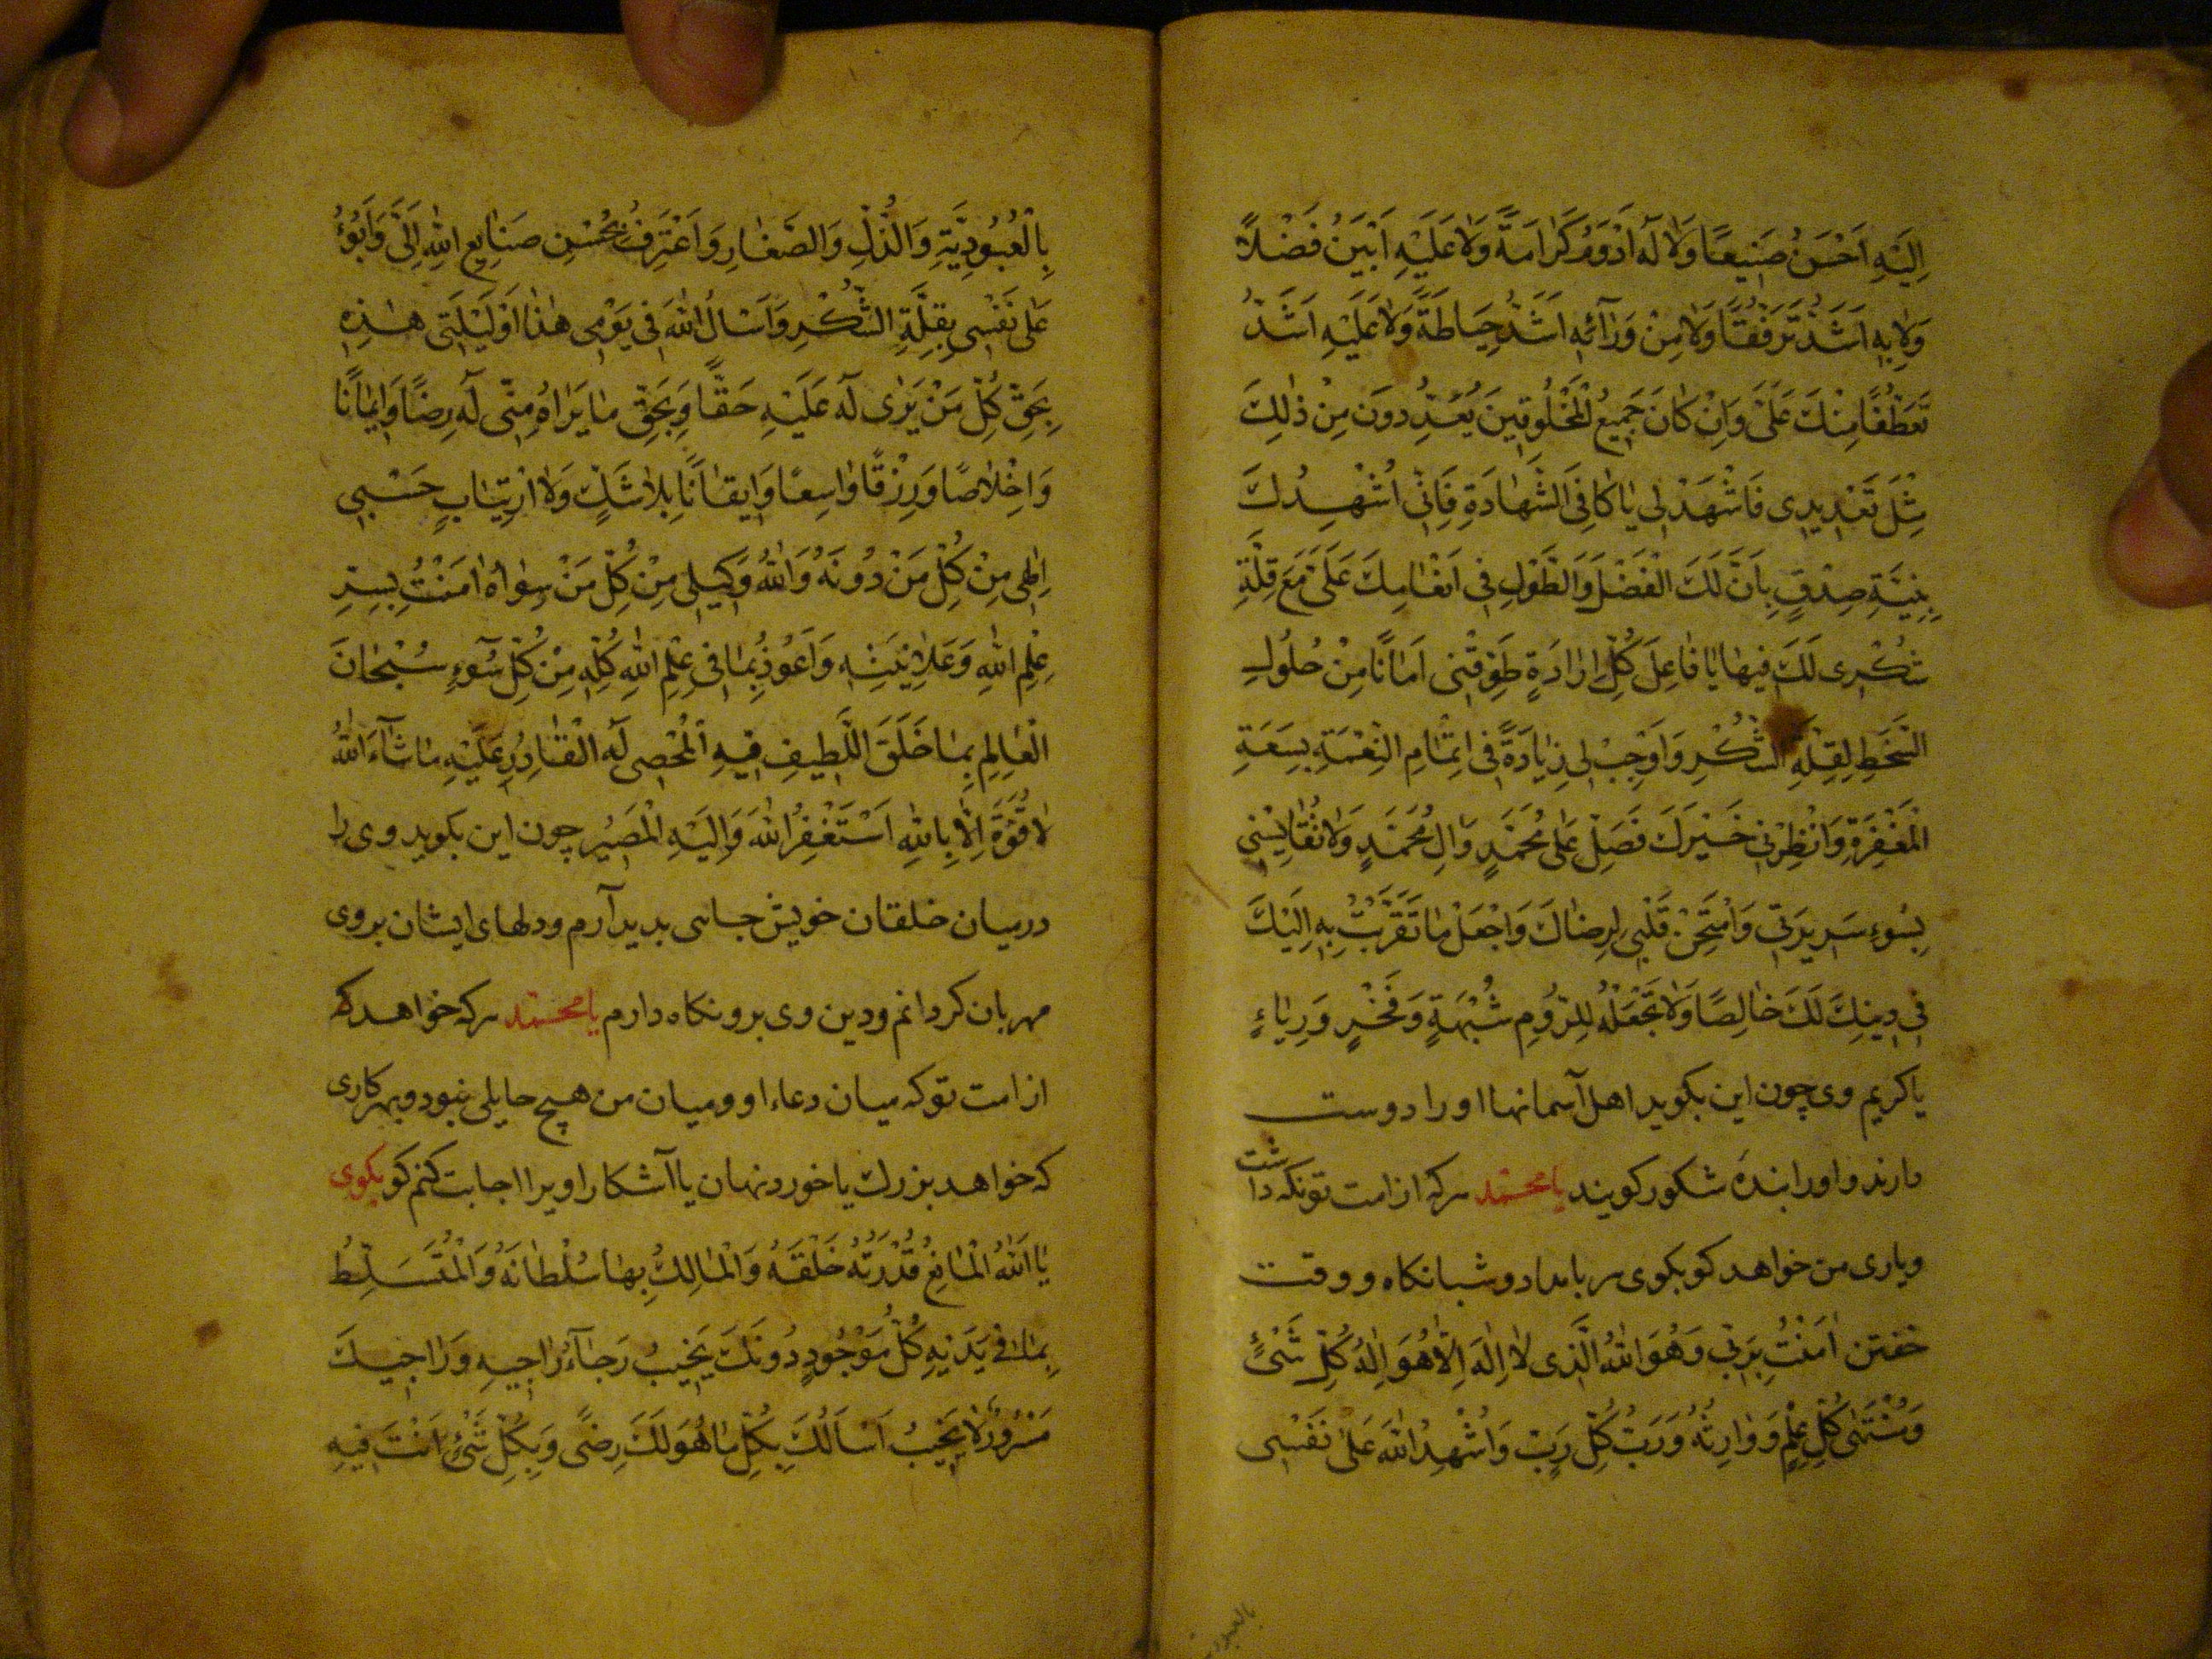 اِلَيْهِ اَحْسَنُ صَنِيعًا وَلَا لَهُ اَدْوَمُ كَرَامَةً وَلَا عَلَيْهِ اَبْيَنُ فَضْلًا
وَلَا بِهِ اَشَدُّ تَرَفُّقًا وَلَا مِنْ وَرَائِهِ اَشَدُّ حِيَاطَةً وَلَا عَلَيْهِ اَشَدُّ
تَعَطُّفًا مِنْكَ عَلَيَّ وَاِنْ كَانَ جَمِيعُ الْمَخْلُوقِينَ يُعَدِّدُونَ مِنْ ذٰلِكَ
مِثْلَ تَعْدِيدِى فَاشْهَدْ لِى يَا كَافِىَ الشَّهَادَةِ فَاِنِّى اُشْهِدُكَ
بِنِيَّةِ صِدْقٍ بِاَنَّ لَكَ الْفَضْلَ وَالطَّوْلَ فِى اِنْعَامِكَ عَلَيَّ مَعَ قِلَّةِ
شُكْرِى لَكَ فِيهَا يَا فَاعِلَ كُلِّ اِرَادَةٍ طَوِّقْنِى اَمَانًا مِنْ حُلُولِ
السَّخَطِ لِقِلَّةِ الشُّكْرِ وَاَوْجِبْ لِى زِيَادَةً فِى اِتْمَامِ النِّعْمَةِ بِسَعَةِ
الْمَغْفِرَةِ وَانْظُرْنِى خَيْرَكَ فَصَلِّ عَلٰى مُحَمَّدٍ وَالِ مُحَمَّدٍ وَلَا تُقَايِسْنِى
بِسُوءِ سَرِيرَتِى وَامْتَحِنْ قَلْبِى لِرِضَاكَ وَاجْعَلْ مَا تَقَرَّبْتُ بِهِ اِلَيْكَ
فِى دِينِكَ لَكَ خَالِصًا وَلَا تَجْعَلْهُ لِلُزُومِ شُبْهَةٍ وَفَخْرٍ وَرِيَاءٍ
يا كريم وى چون اين بكويد اهل آسمانها او را دوست
دارند و او را بنده شكور كويند يا محمّد هركه از امت تو نكه داشت
و يارى من خواهد كو بكوى هر بامداد و شبانكاه و وقت
خفتن اٰمَنْتُ بِرَبِّى وَهُوَ اللّٰهُ الَّذِى لَا اِلٰهَ اِلَّا هُوَ اِلٰهُ كُلِّ شَىْءٍ
وَمُنْتَهٰى كُلِّ عِلْمٍ وَوَارِثُهُ وَرَبُّ كُلِّ رَبٍّ وَاُشْهِدُ اللّٰهَ عَلٰى نَفْسِى
بِالْعُبُودِيَّةِ وَالذُّلِّ وَالصَّغَارِ وَاَعْتَرِفُ بِحُسْنِ صَنَايِعِ اللّٰهِ اِلَيَّ وَاَبُوءُ
عَلٰى نَفْسِى بِقِلَّةِ الشُّكْرِ وَاَسْاَلُ اللّٰهَ فِى يَوْمِى هٰذَا اَوْ لَيْلَتِى هٰذِهِ
بِحَقِّ كُلِّ مَنْ يَرٰى لَهُ عَلَيْهِ حَقًّا وَبِحَقِّ مَا يَرَاهُ مِنِّى لَهُ رِضًا وَاِيمَانًا
وَاِخْلَاصًا وَرِزْقًا وَاسِعًا وَاِيقَانًا بِلَا شَكٍّ وَلَا ارْتِيَابٍ حَسْبِى
اِلٰهِى مِنْ كُلِّ مَنْ دُونَهُ وَاللّٰهُ وَكِيلِى مِنْ كُلِّ مَنْ سِوَاهُ اٰمَنْتُ بِسِرِّ
عِلْمِ اللّٰهِ وَعَلَانِيَتِهِ وَاَعُوذُ بِمَا فِى عِلْمِ اللّٰهِ كُلِّهِ مِنْ كُلِّ سُوٓءٍ سُبْحَانَ
الْعَالِمِ بِمَا خَلَقَ اللَّطِيفِ فِيهِ الْمُحْصِى لَهُ الْقَادِرِ عَلَيْهِ مَا شَآءَ اللّٰهُ
لَا قُوَّةَ اِلَّا بِاللّٰهِ اَسْتَغْفِرُ اللّٰهَ وَاِلَيْهِ الْمَصِيرُ چون اين بكويد وى را
در ميان خلقان خويش جاهى بديد آرم و دلهاى ايشان بر وى
مهربان كردانم و دين وى برو نكاه دارم يا محمّد هركه خواهد كه
از امت تو كه ميان دعاء او و ميان من هيچ حايلى نبود و بهر كارى
كه خواهد بزرك يا خورد نهان يا آشكارا ويرا اجابت كنم كو بكوى
يَا اَللّٰهُ الْمَانِعُ قُدْرَتُهُ خَلْقَهُ وَالْمَالِكُ بِهَا سُلْطَانَهُ وَالْمُتَسَلِّطُ
بِمَا فِى يَدَيْهِ كُلُّ مَوْجُودٍ دُونَكَ يَخِيبُ رَجَآءُ رَاجِيهِ وَرَاجِيكَ
مَسْرُورٌ لَا يَخِيبُ اَسْاَلُكَ بِكُلِّ مَا هُوَ لَكَ رِضًى وَبِكُلِّ شَىْءٍ اَنْتَ فِيهِ